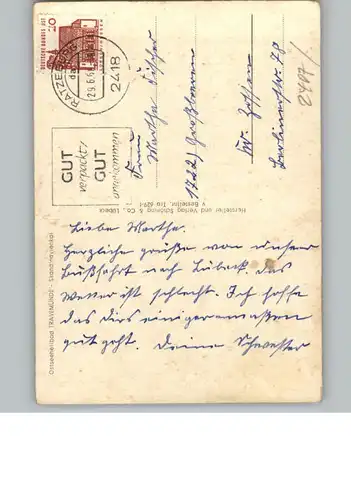 DEUTSCHE BUNDESPOST
20
RATZEBURG
29.6.6
2418
GUT
verpackt:
GUT
angekommen
Frau
Martha Fischer
1722) Großbeeren
Kr. Zossen
Berlinerstr. 79
2407/
Hersteller und Verlag Schöning & Co., Lübeck
Bestellnr. Tra 629
Ostseeheilbad TRAVEMÜNDE - Skandinavienkai
Liebe Martha.
Herzliche Grüße von unserer
Busfahrt nach Lübeck. Das
Wetter ist schlecht. Ich hoffe
das Dirs einigermaßen
gut geht. Deine Schwester